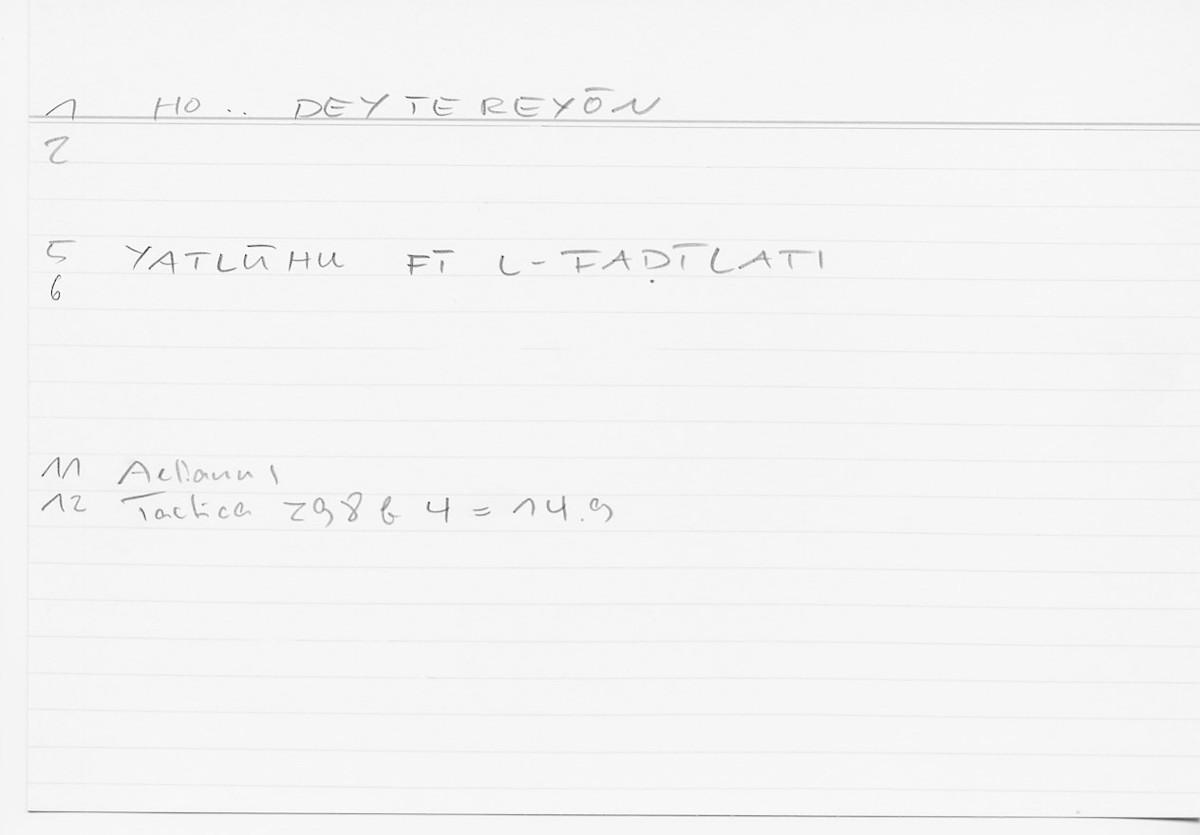 1 HO .. DEYTEREYŌN
2
5 YATLŪHU FĪ L-FAḌĪLATI
6
11 Aelianus
12 Tactica 298 b 4 = 14.9